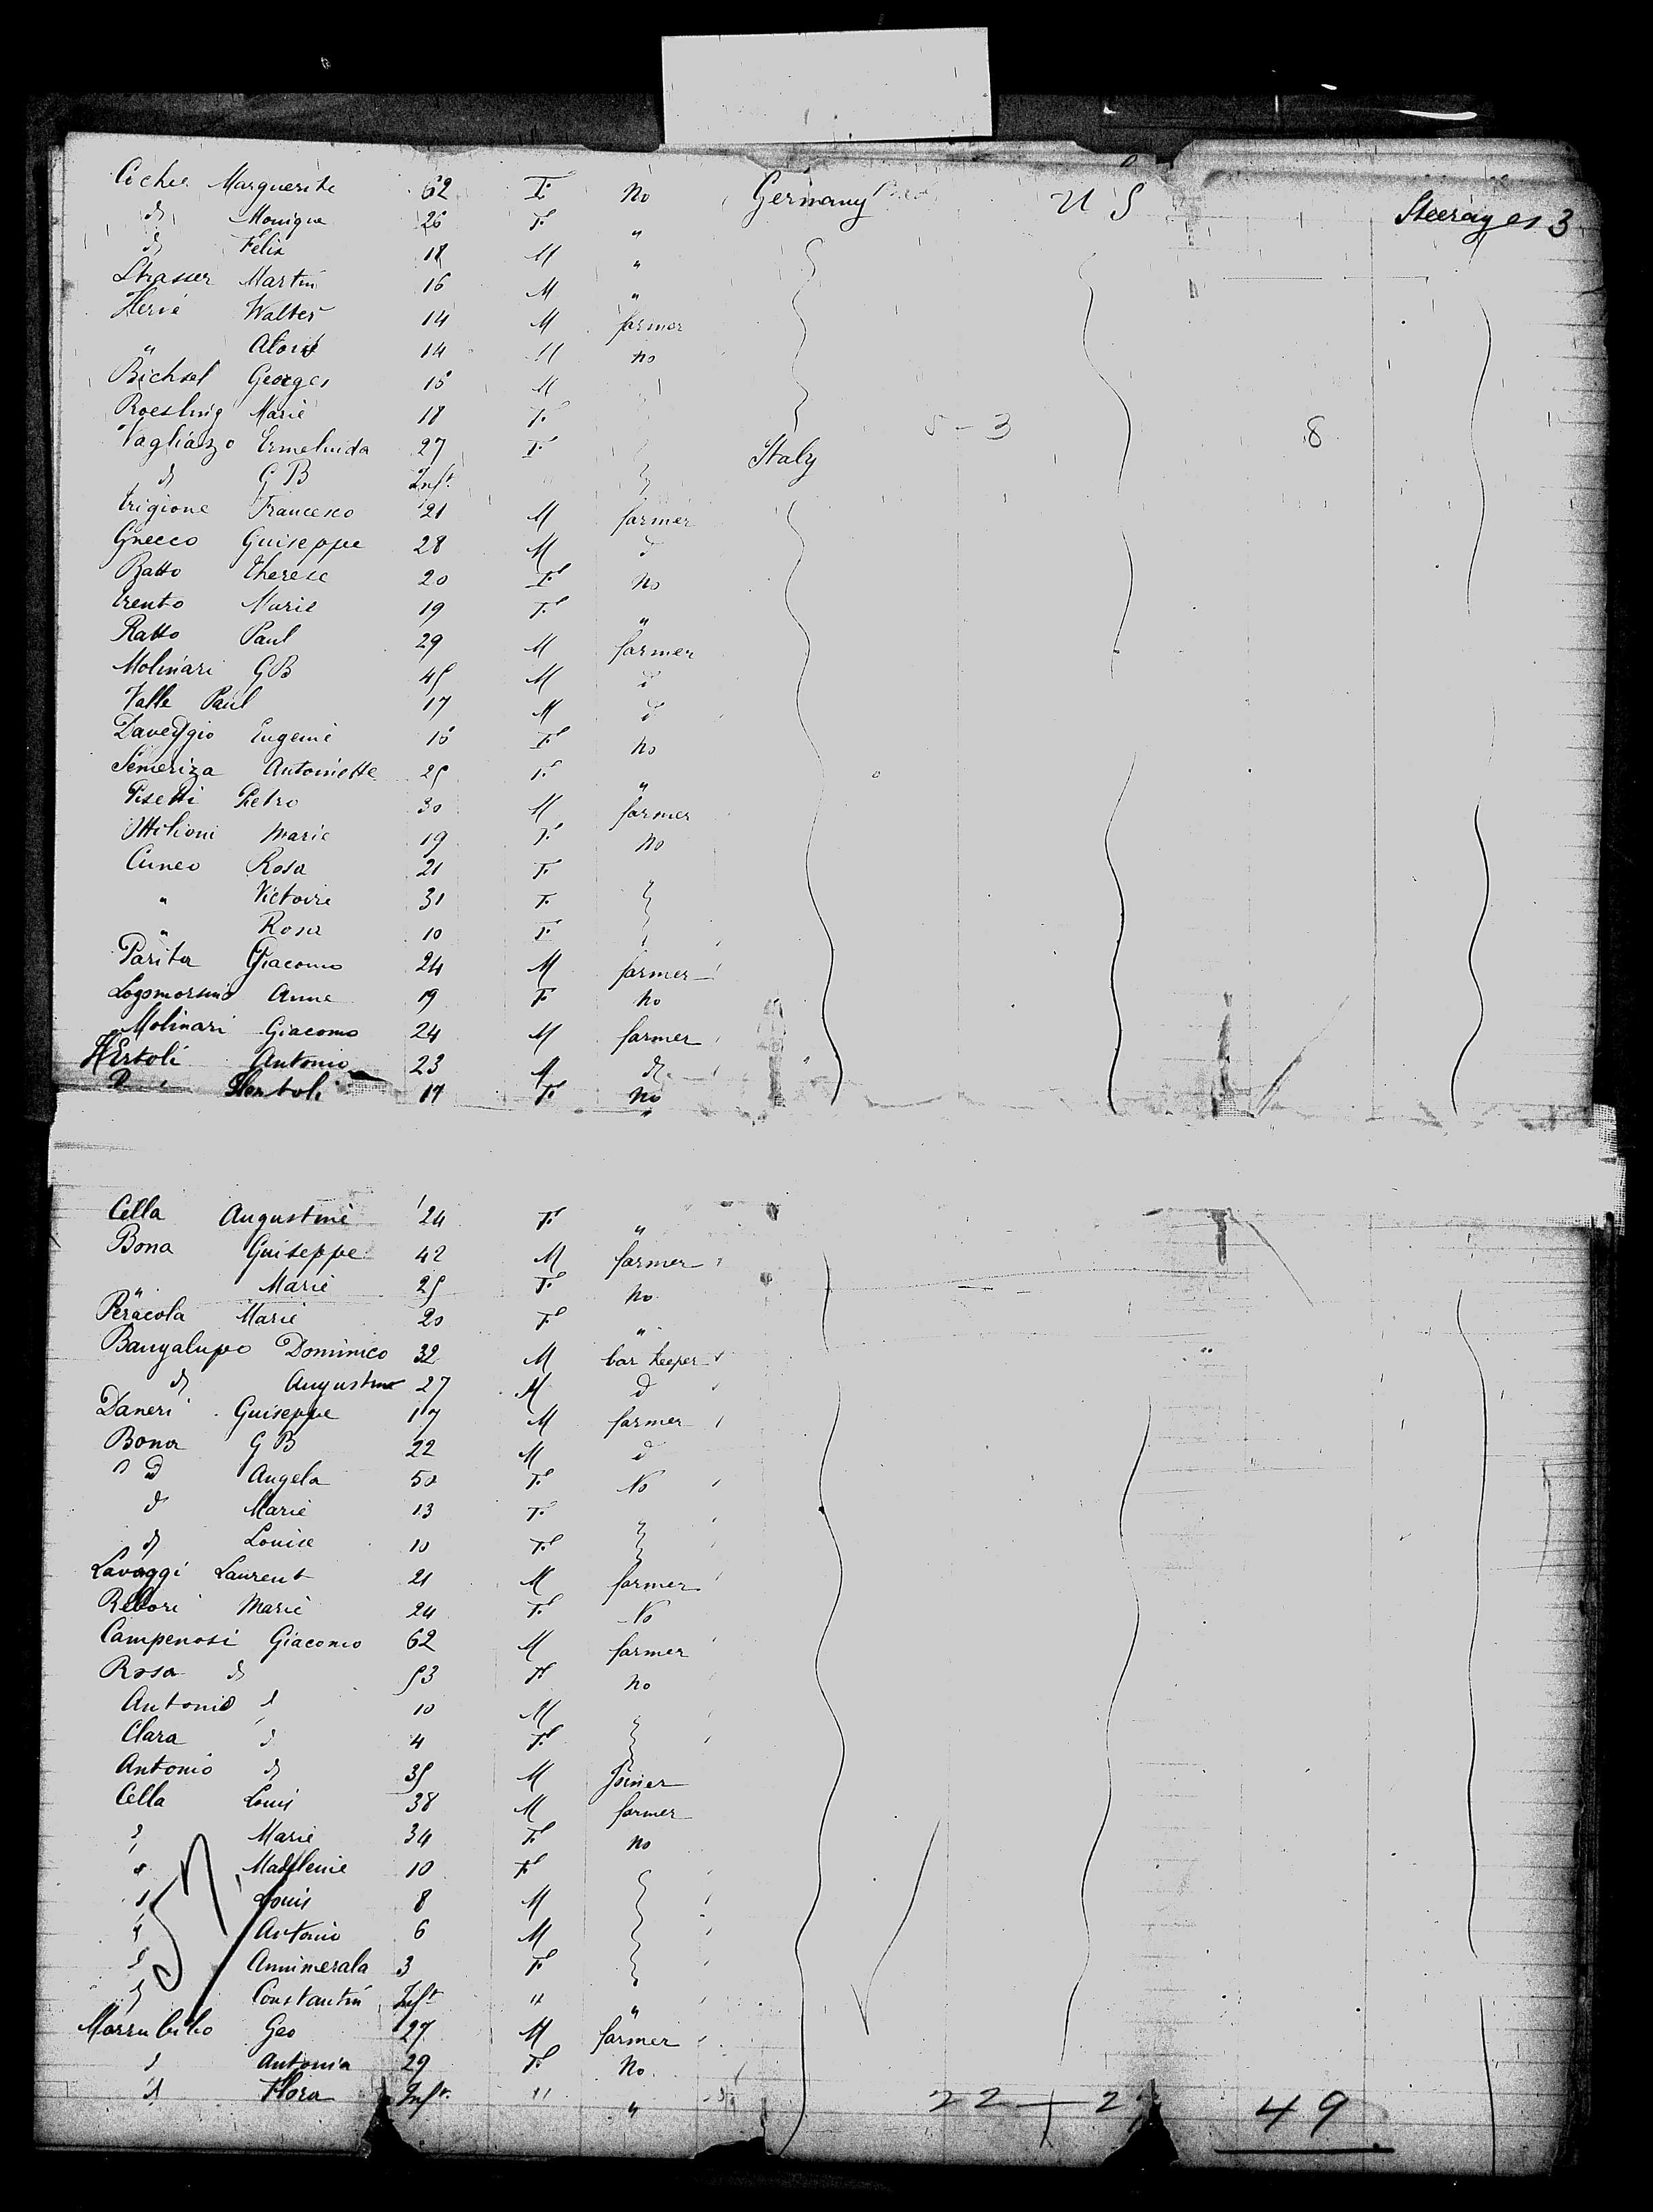 Marguerite 62 F. no Germany U S Steerages 3
d Monique 26 F. "
d Felix 18 M "
Strasser Martin 16 M "
Hervé Walter 14 M farmer
" Alois 14 M no
Bichsel Georges 16 M
Roesling Marie 18 F.
Vagliazo Ermelinida 27 F. Italy 5 - 3 8
d G B Inft.
Trigione Francesco 21 M farmer
Gnecco Guiseppe 28 M d
Ratto Therese 20 F. no
Trento Marie 19 F. "
Ratto Paul 29 M farmer
Molinari GB 45 M d
Valle Paul 17 M d
Daveggio Eugenie 16 F. no
Semeriza Antoinette 25 F. "
Pisetti Pietro 30 M farmer
Ottilioni Marie 19 F. no
Cuneo Rosa 21 F.
" Victoire 31 F.
" Rosa 10 F.
Parita Giacomo 24 M farmer
Logomorsino Anne 19 F. no
Molinari Giacomo 24 M farmer
Antonio 23 M d
17 F. no
"
Cella Augustine 24 F. "
Bona Guiseppe 42 M farmer
" Marie 25 F. no
Peracola Marie 20 F. "
Bangalupo Dominico 32 M bar keeper
d Augustino 27 M d
Daneri Guiseppe 17 M farmer
Bona G B 22 M d
d Angela 50 F. No
d Marie 13 F.
d Louise 10 F.
Lavaggi Laurent 21 M farmer
Rebori Marie 24 F. No
Campenosi Giacomo 62 M farmer
Rosa d 53 F. no
Antonio d 10 M
Clara d 4 F.
Antonio d 35 M joiner
Cella Louis 38 M farmer
d Marie 34 F. no
d Madeleine 10 F.
d Louis 8 M
d Antonio 6 M
d Annimerala 3 F.
d Constantin Inft " "
Marrubilio Geo 27 M farmer
d Antonia 29 F. no
d Flora Inft. " "
22 + 27 49